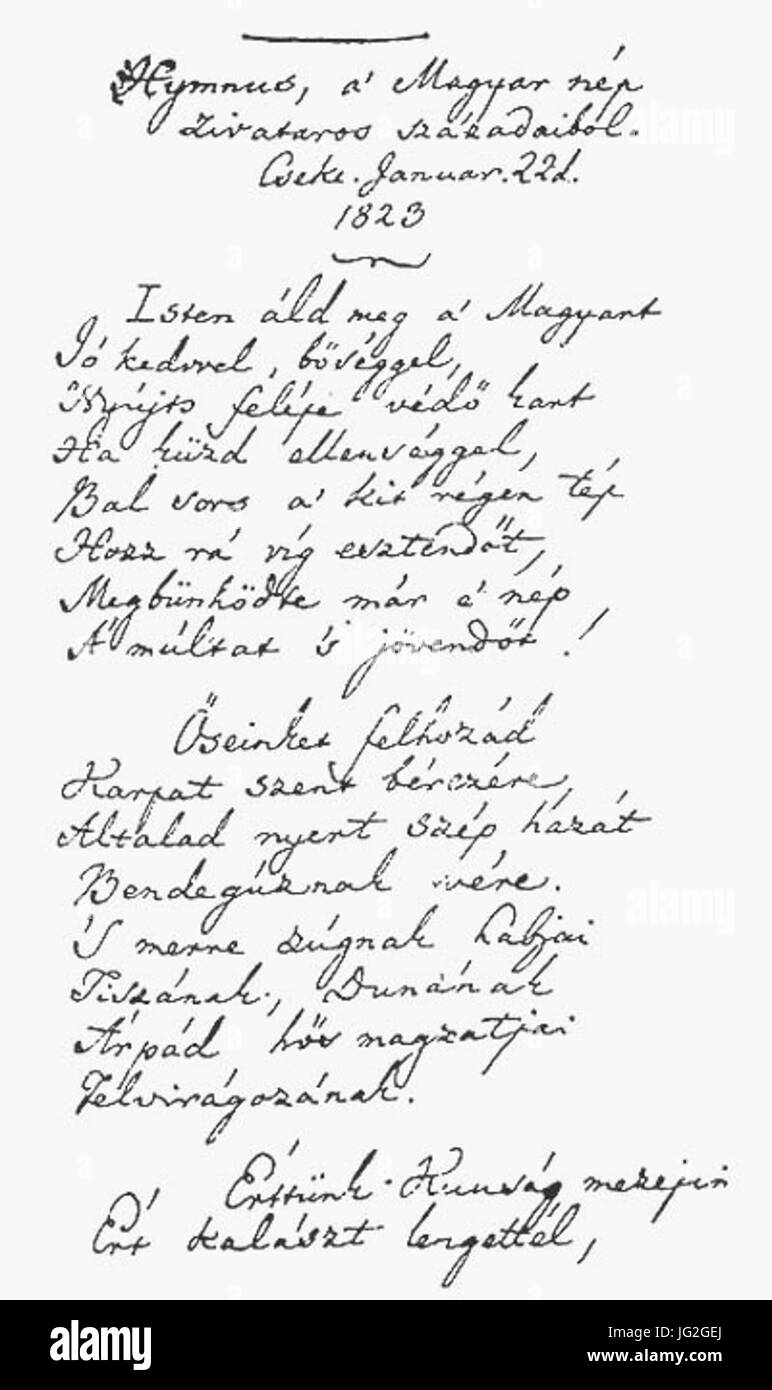 Hymnus, a' Magyar nép
zivataros századaiból.
Cseke. Januar. 22d.
1823
Isten áld meg a' Magyart
Jó kedvvel, bőséggel,
Nyújts feléje védő kart
Ha küzd ellenséggel,
Bal sors a' kit régen tép
Hozz rá víg esztendőt,
Megbünhödte már e' nép
A' múltat 's jövendőt!
Őseinket felhozád
Karpat szent bérczére,
Általad nyert szép hazát
Bendegúznak vére.
'S merre zúgnak habjai
Tiszának, Dunának
Árpád hős magzatjai
Felvirágozának.
Érttünk Kunság mezején
Ért kalászt lengettél,
alamy
alamy
alamy
alamy
a
a
a
a
a
a
alamy stock photo
JG2GEJ
www.alamy.com